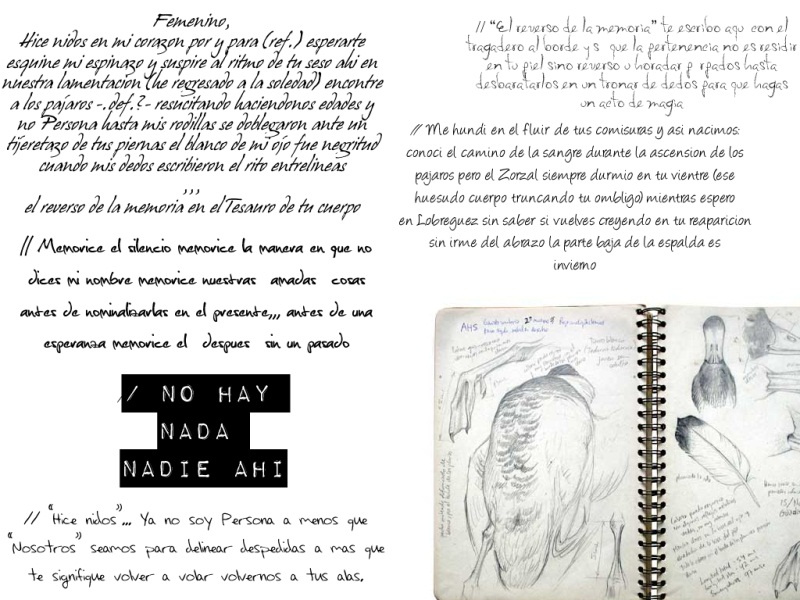 Femenino,
Hice nidos en mi corazon por y para (ref.) esperarte
esquine mi espinazo y suspire al ritmo de tu seso ahi en
nuestra lamentacion (he regresado a la soledad) encontre
a los pajaros -.def.?- resucitando haciendonos edades y
no Persona hasta mis rodillas se doblegaron ante un
tijeretazo de tus piernas el blanco de mi ojo fue negritud
cuando mis dedos escribieron el rito entrelineas
,,,
el reverso de la memoria en el Tesauro de tu cuerpo
// Memorice el silencio memorice la manera en que no
dices mi nombre memorice nuestras amadas cosas
antes de nominalizarlas en el presente,,, antes de una
esperanza memorice el despues sin un pasado
/ NO HAY
NADA
NADIE AHI
// "Hice nidos",,, Ya no soy Persona a menos que
"Nosotros" seamos para delinear despedidas a mas que
te signifique volver a volar volvernos a tus alas,
// "El reverso de la memoria" te escribo aqu con el
tragadero al borde y s que la pertenencia no es residir
en tu piel sino reverso u horadar p rpados hasta
desbaratarlos en un tronar de dedos para que hagas
un acto de magia
// Me hundi en el fluir de tus comisuras y asi nacimos:
conoci el camino de la sangre durante la ascension de los
pajaros pero el Zorzal siempre durmio en tu vientre (ese
huesudo cuerpo truncando tu ombligo) mientras espero
en Lobreguez sin saber si vuelves creyendo en tu reaparicion
sin irme del abrazo la parte baja de la espalda es
invierno
AHS